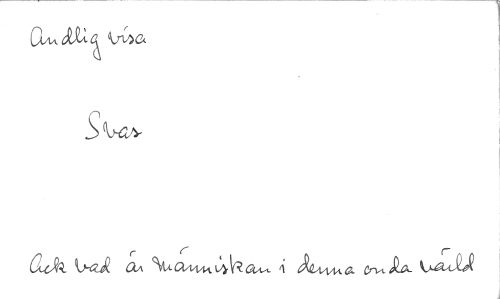 Andlig visa
Svar
Ack vad är människan i denna onda värld